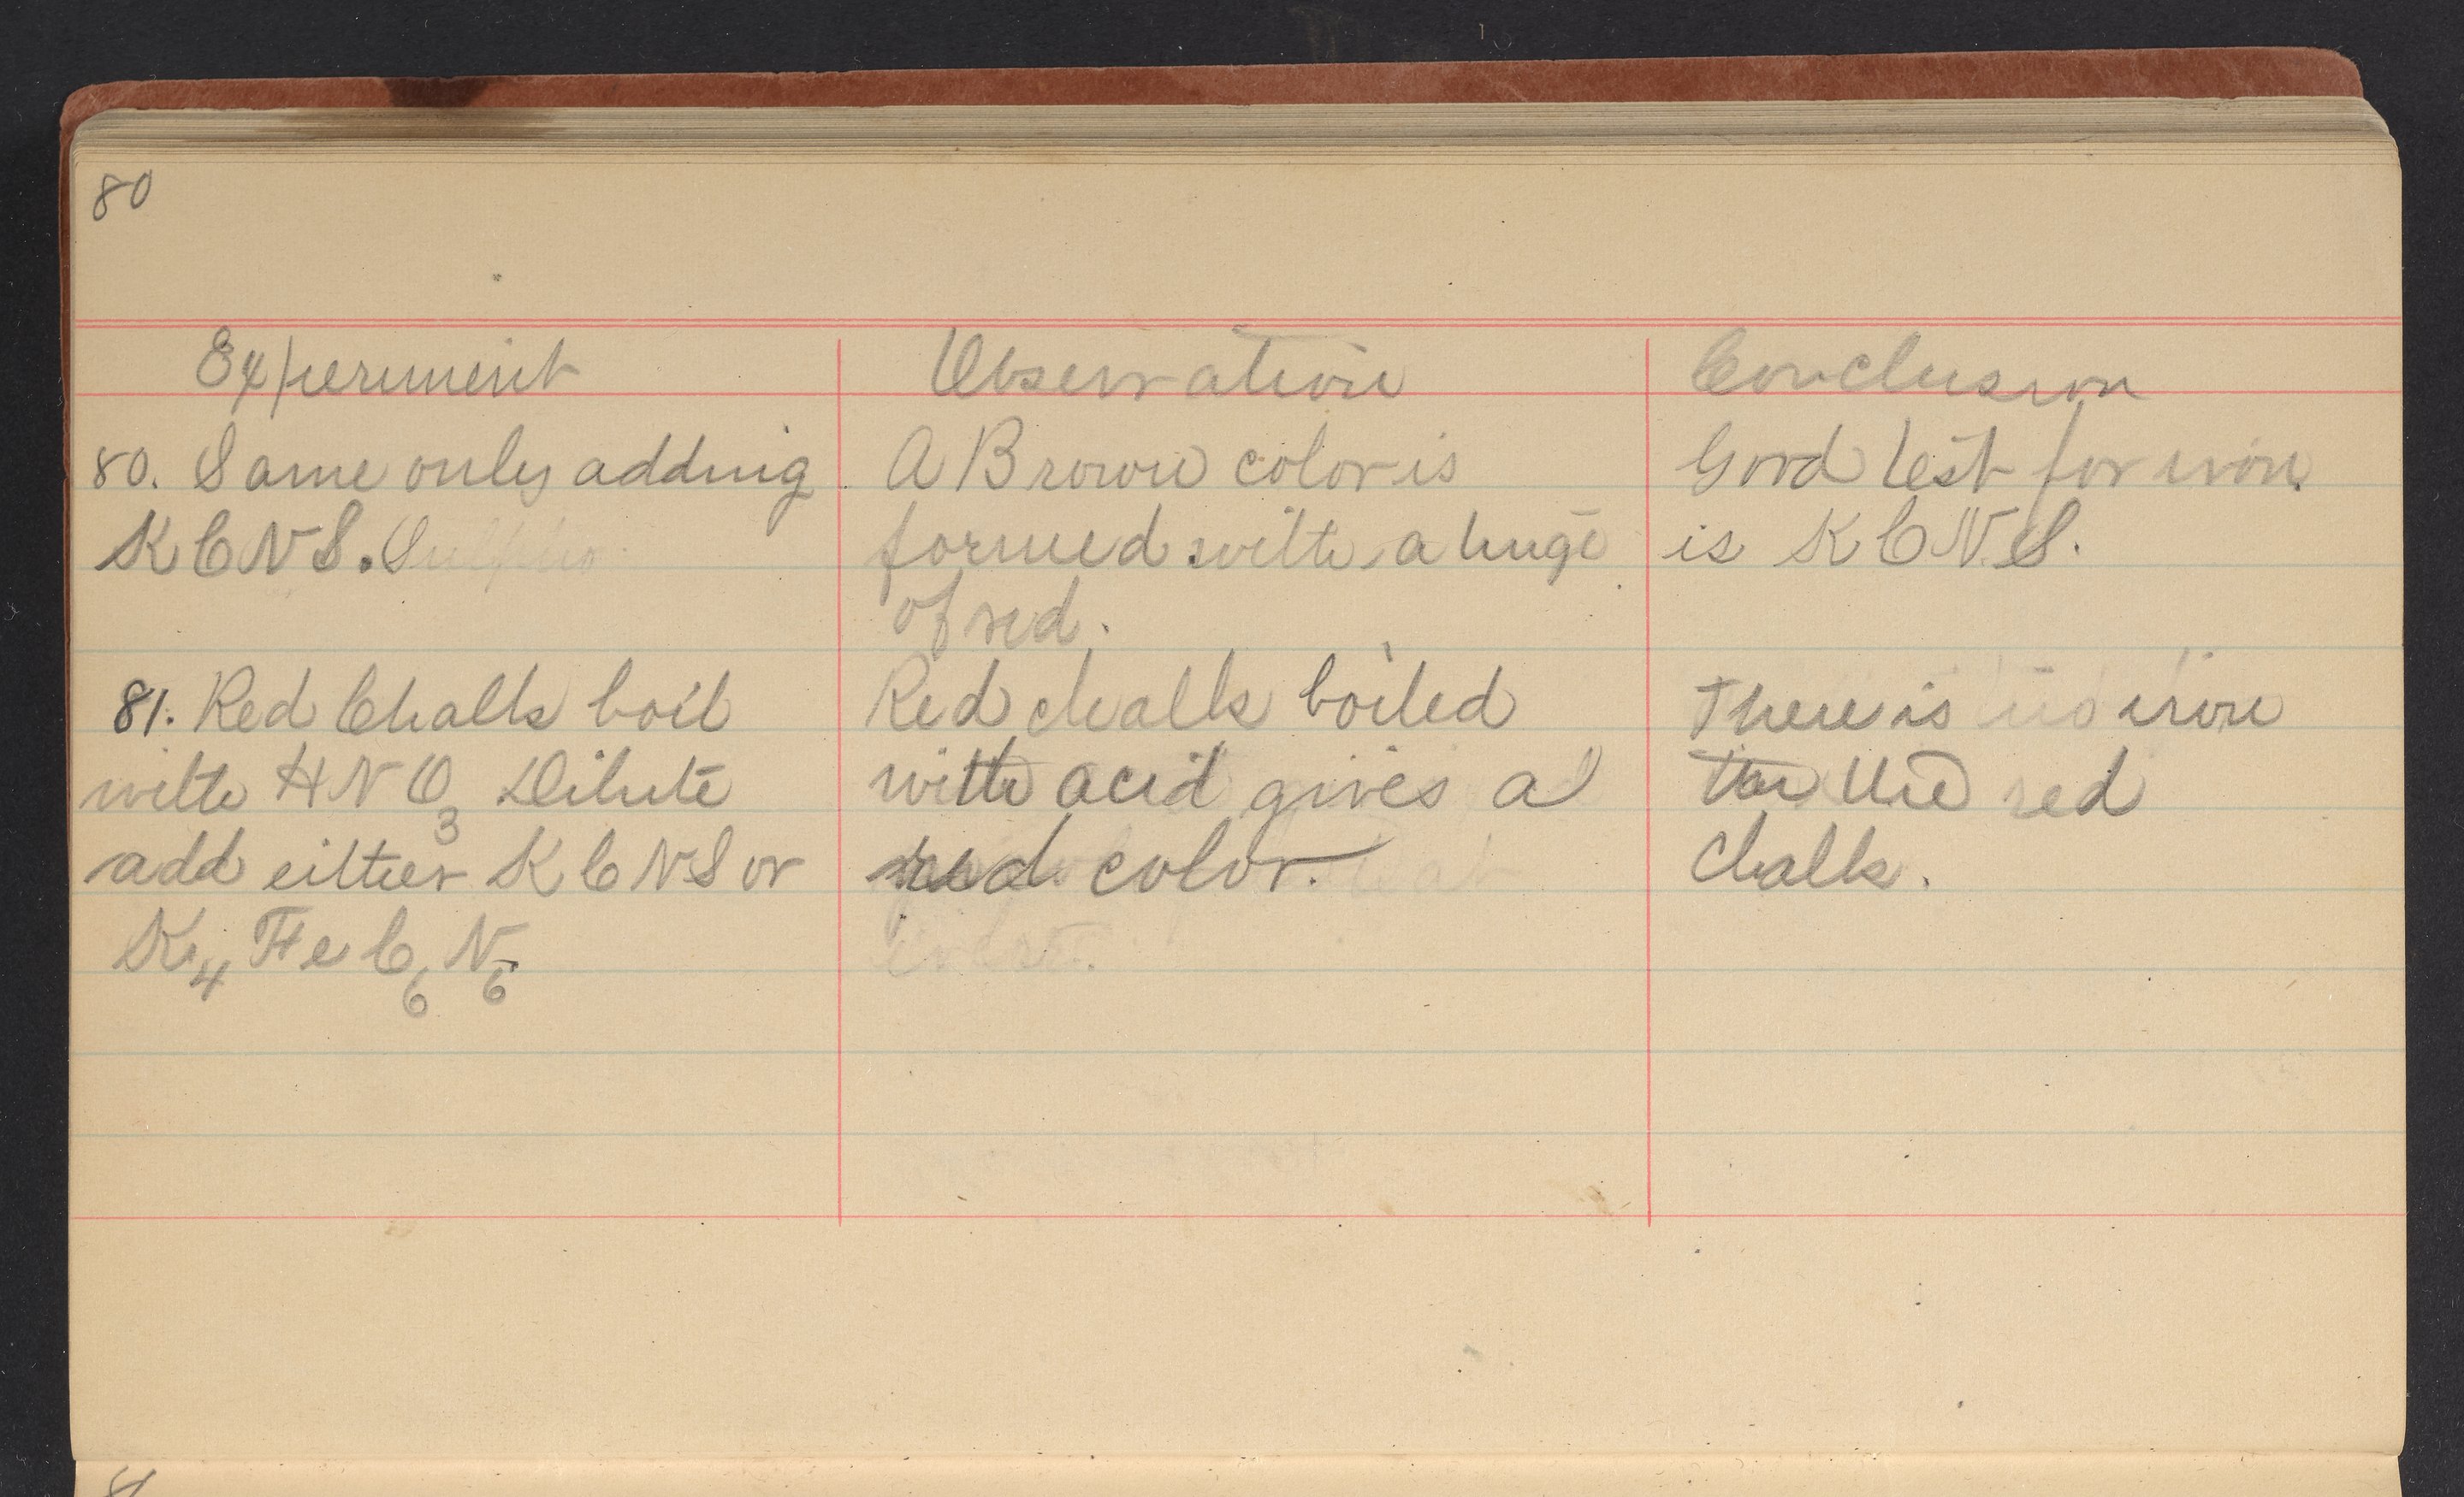 80
Experiment
80. Same only adding
KCNS.
81. Red Chalk boil
with HNO3 Dilute
add either KCNS or
K4FeC6N6
Observation
A Brown color is
formed with a tinge
of red.
Red chalk boiled
with acid gives a
red color.
Conclusion
Good test for iron
is KCNS.
There is iron
the red
Chalk.